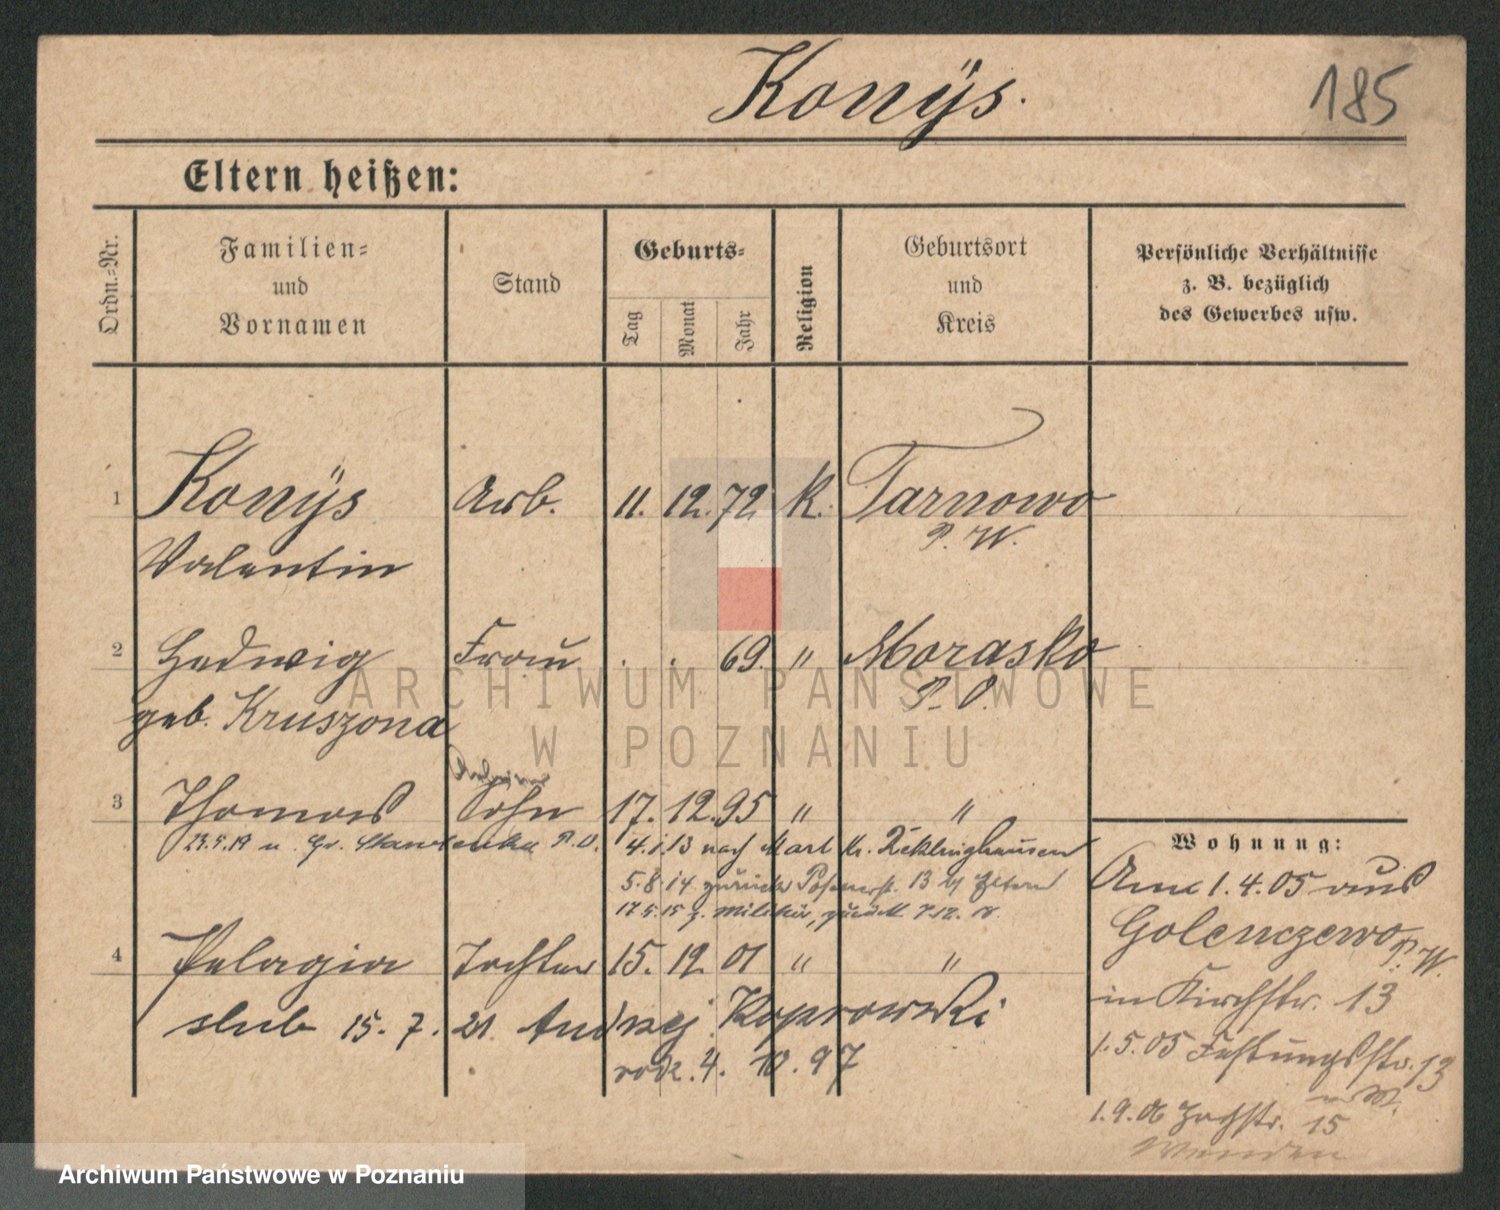 Konÿs.
185
Eltern heißen:
Ordn.=Nr.
Familien=
und
Vornamen
Stand
Geburts=
Tag
Monat
Jahr
Religion
Geburtsort
und
Kreis
Persönliche Verhältnisse
z. B. bezüglich
des Gewerbes usw.
1 Konÿs Arb. 11. 12. 72 K. Tarnowo
Valentin P. W.
2 Hedwig Frau . . 69. " Morasko
geb. Kruszona P. O.
3 Thomas Sohn 17. 12. 95 " "
23.9.19 n. Gr. P.O. 4.1.13 nach Marl Kr. Recklinghausen
5.8.14 zurück Posenerstr. 13 Eltern
17.5.15 z. Militär, zurück
4 Pelagia Tochter 15. 12. 01 " "
slub 15. 7. 21. Andrzej Koprowski
rodz. 4. 10. 97
Wohnung:
Am 1.4.05 aus
Golenczewo P. W.
in Kirchstr. 13
1.5.05 Festungsstr. 13
1.9.06 15
ARCHIWUM PAŃSTWOWE
W POZNANIU
Archiwum Państwowe w Poznaniu